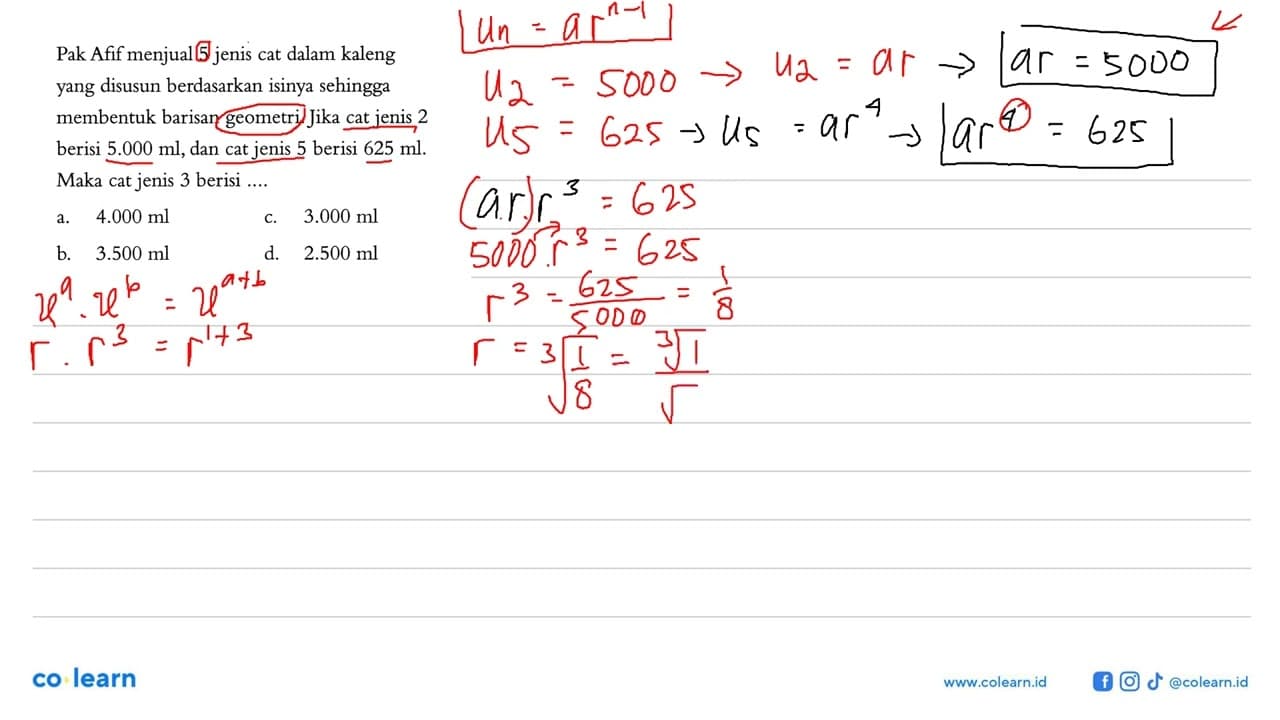 Pak Afif menjual 5 jenis cat dalam kaleng
yang disusun berdasarkan isinya sehingga
membentuk barisan geometri. Jika cat jenis 2
berisi 5.000 ml, dan cat jenis 5 berisi 625 ml.
Maka cat jenis 3 berisi ....
a. 4.000 ml c. 3.000 ml
b. 3.500 ml d. 2.500 ml
x^a . x^b = x^(a+b)
r . r^3 = r^(1+3)
Un = ar^(n-1)
U2 = 5000 → U2 = ar → ar = 5000
U5 = 625 → U5 = ar^4 → ar^4 = 625
(a.r).r^3 = 625
5000.r^3 = 625
r^3 = 625/5000 = 1/8
r = ∛(1/8) = ∛1/√
co learn
www.colearn.id
@colearn.id